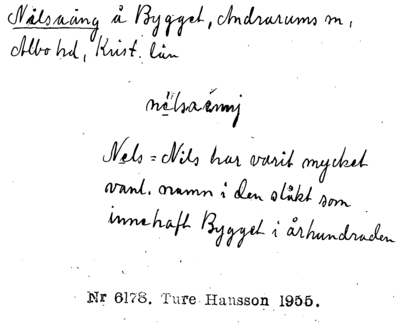 Nilsaäng å Bygget, Andrarums sn,
Albo hd, Krist. län
Nels = Nils har varit mycket
vanl. namn i den släkt som
innehaft Bygget i århundraden
Nr 6178. Ture Hansson 1955.